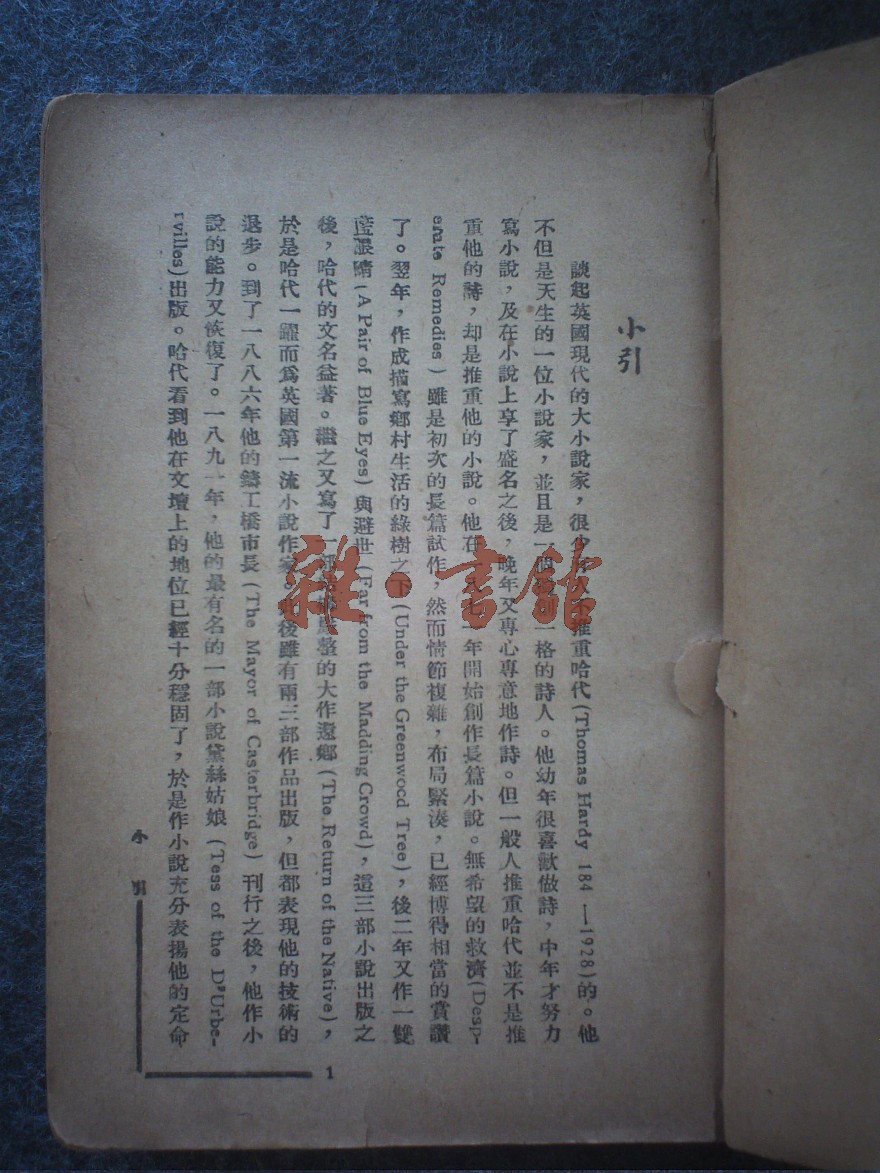 小引
談起英國現代的大小說家，很少有人不推重哈代(Thomas Hardy 184 —1928)的。他
不但是天生的一位小說家，並且是一個 一格的詩人。他幼年很喜歡做詩，中年才努力
寫小說，及在小說上享了盛名之後，晚年又專心專意地作詩。但一般人推重哈代並不是推
重他的詩，却是推重他的小說。他在一八七一年開始創作長篇小說。無希望的救濟(Desp-
erate Remedies)雖是初次的長篇試作，然而情節複雜，布局緊湊，已經博得相當的賞讚
了。翌年，作成描寫鄉村生活的綠樹之下(Under the Greenwood Tree)，後二年又作一雙
藍眼睛(A Pair of Blue Eyes)與避世(Far from the Madding Crowd)，這三部小說出版之
後，哈代的文名益著。繼之又寫了一部 整的大作還鄉(The Return of the Native)，
於是哈代一躍而爲英國第一流小說作家。此後雖有兩三部作品出版，但都表現他的技術的
退步。到了一八八六年他的鑄工橋市長(The Mayor of Casterbridge)刊行之後，他作小
說的能力又恢復了。一八九一年，他的最有名的一部小說黛絲姑娘(Tess of the D'Urbe-
rvilles)出版。哈代看到他在文壇上的地位已經十分穩固了，於是作小說充分表揚他的定命
小引
1
雜·書館